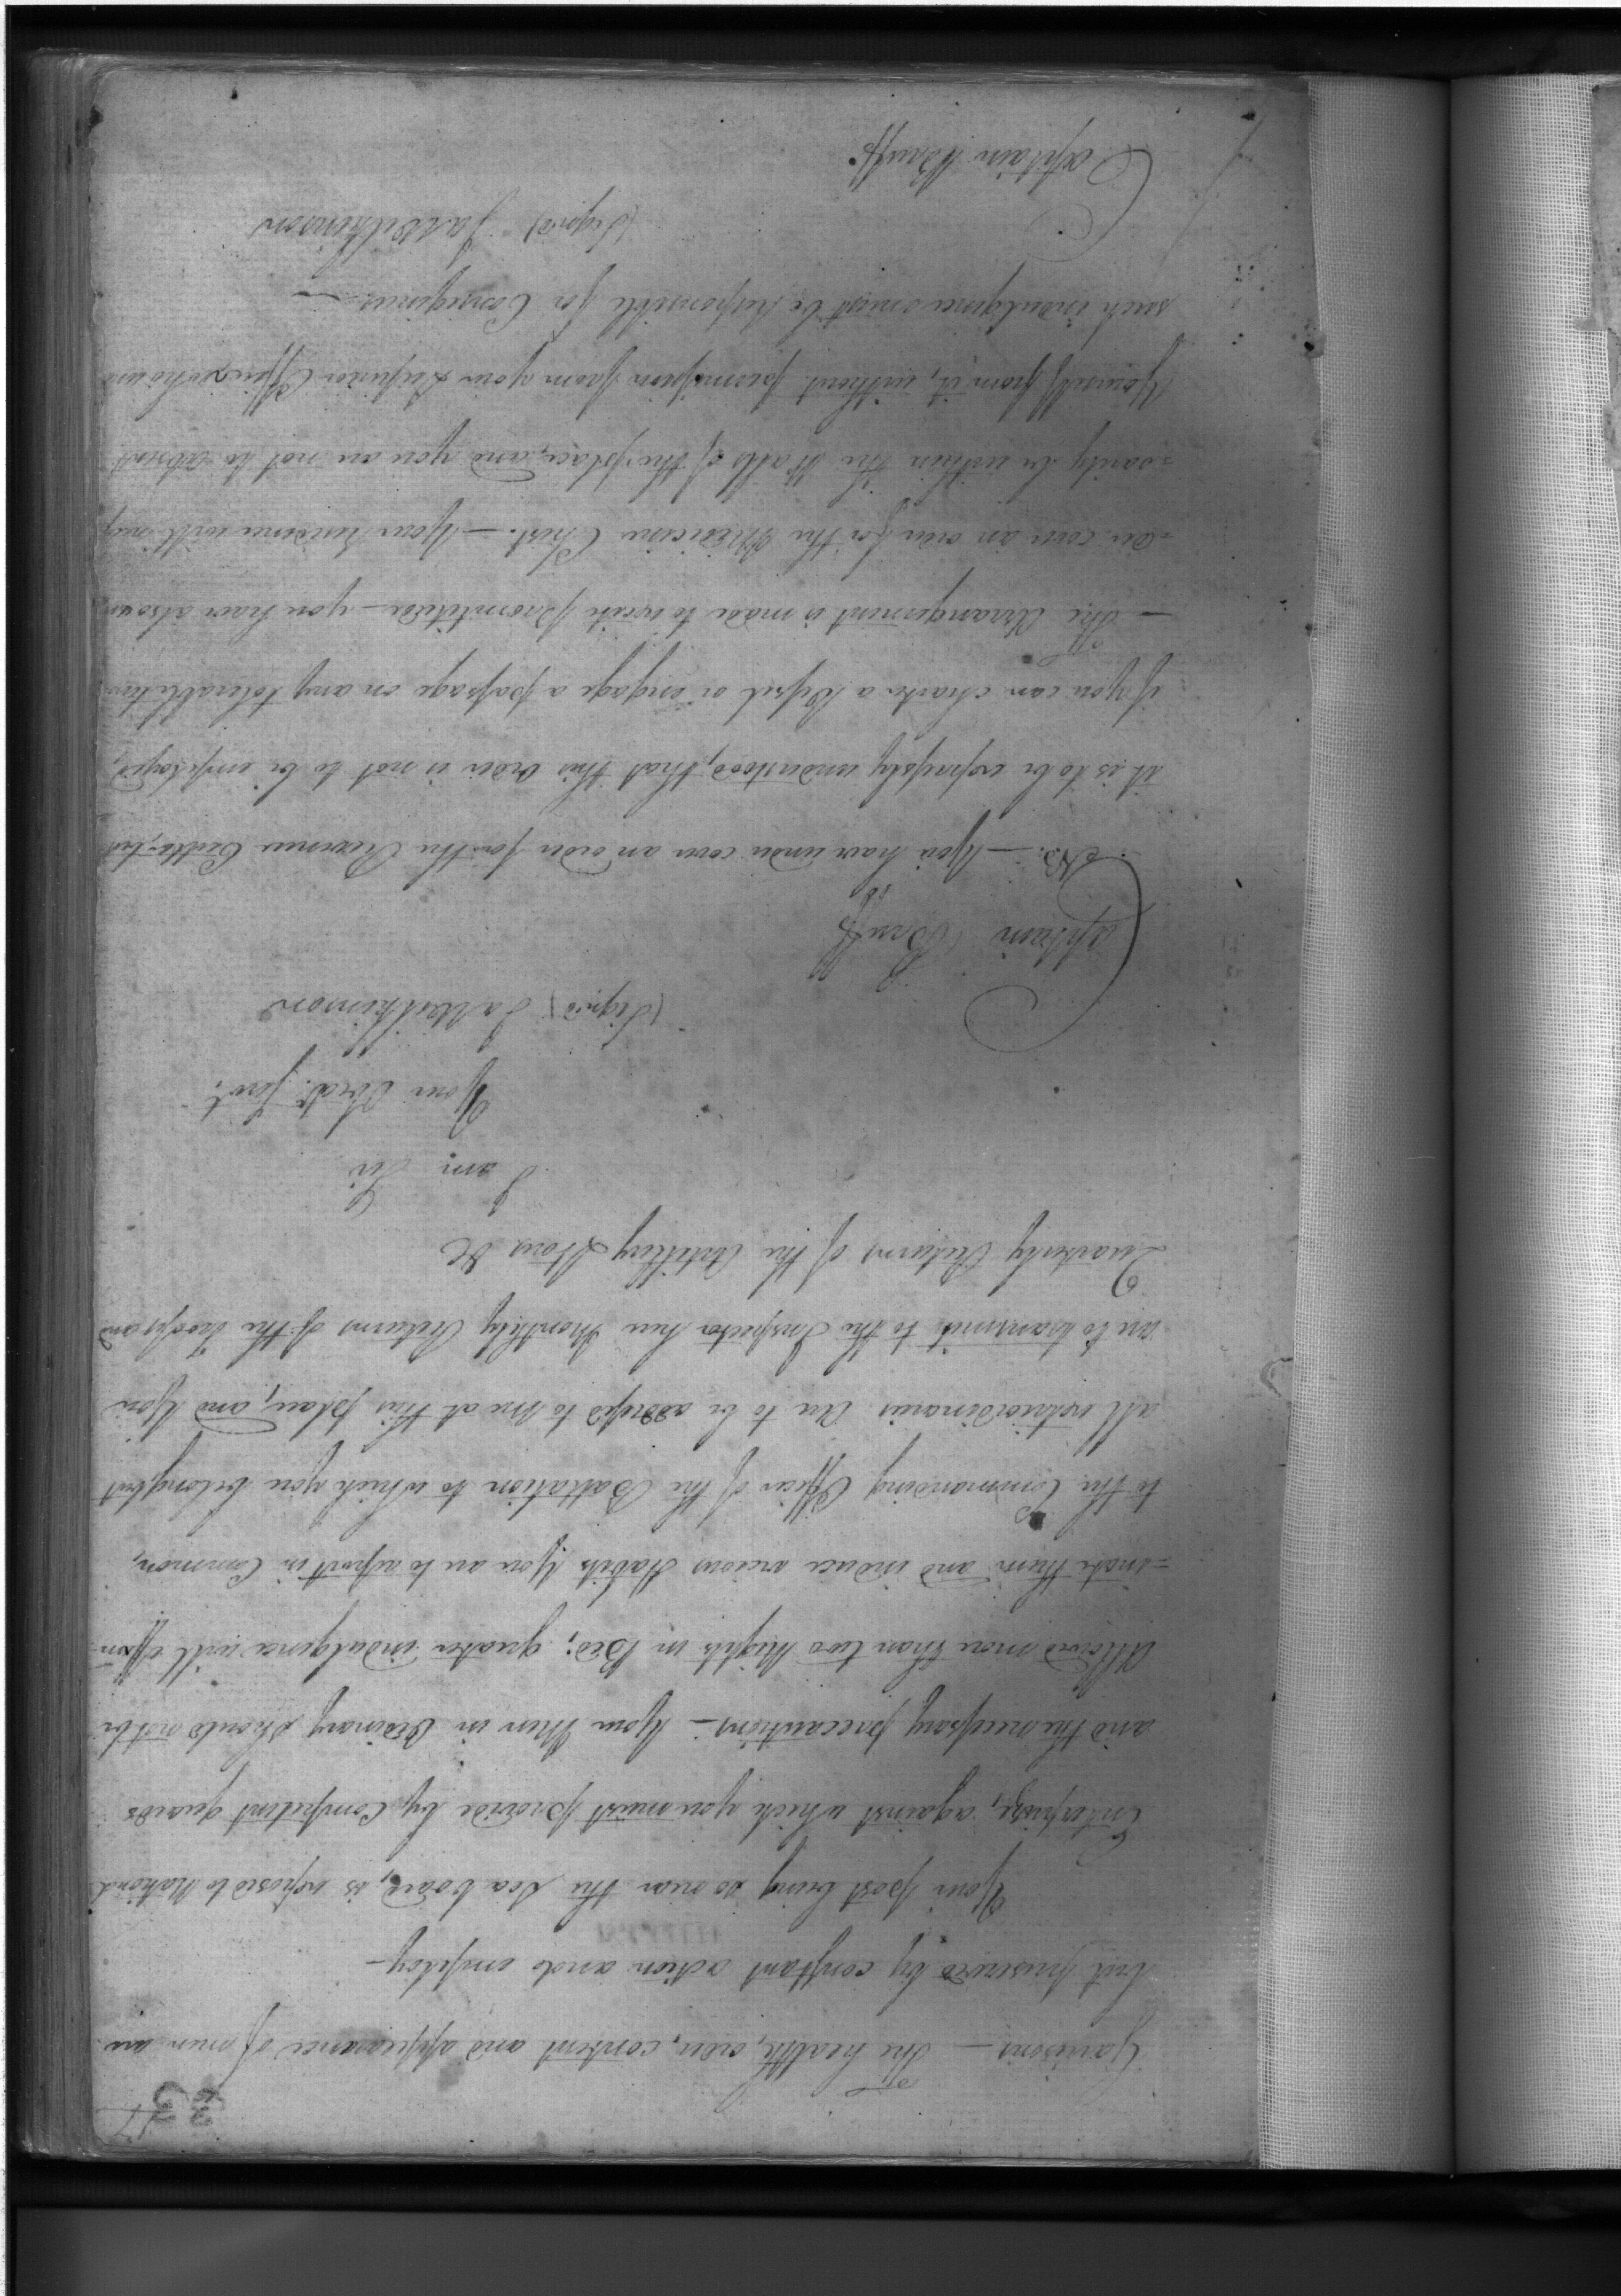 33
Garrisons — The health, order, content and appearance of men are
best preserved by constant action and employ —
Your post being so near the Sea board, is exposed to National
Enterprize, against which you must provide by Competent guards
and the necessary precautions — Your Men in Ordinary should not be
Allowed more than two Nights in Bed; greater indulgence will effem-
=inate them and induce vicious Habits. You are to report in Common,
to the Commanding Officer of the Battalion to which you belong, but
all extraordinaries are to be addressed to me at this place, and You
are to transmit to the Inspector here Monthly Returns of the Troops and
Quarterly Returns of the Artillery Stores &c
I am Sir
Your Obedt. Servt.
(Signed) Ja Wilkinson
Captain Bruff
NB. — You have under cover an order for the Revenue Cutter, but
it is to be expressly understood, that this order is not to be employed,
if you can charter a Vessel or engage a passage on any tolerable terms
— The Arrangement is made to excite promptitude — you have also un
=der cover an order for the Medicine Chest. — Your residence will neces
=sarily be within the Walls of the place, and you are not to absent
Yourself from it, without permission from your Superior Officer, who under
such indulgence must be responsible for Consequences. —
(Signed) Ja Wilkinson
Captain Bruff